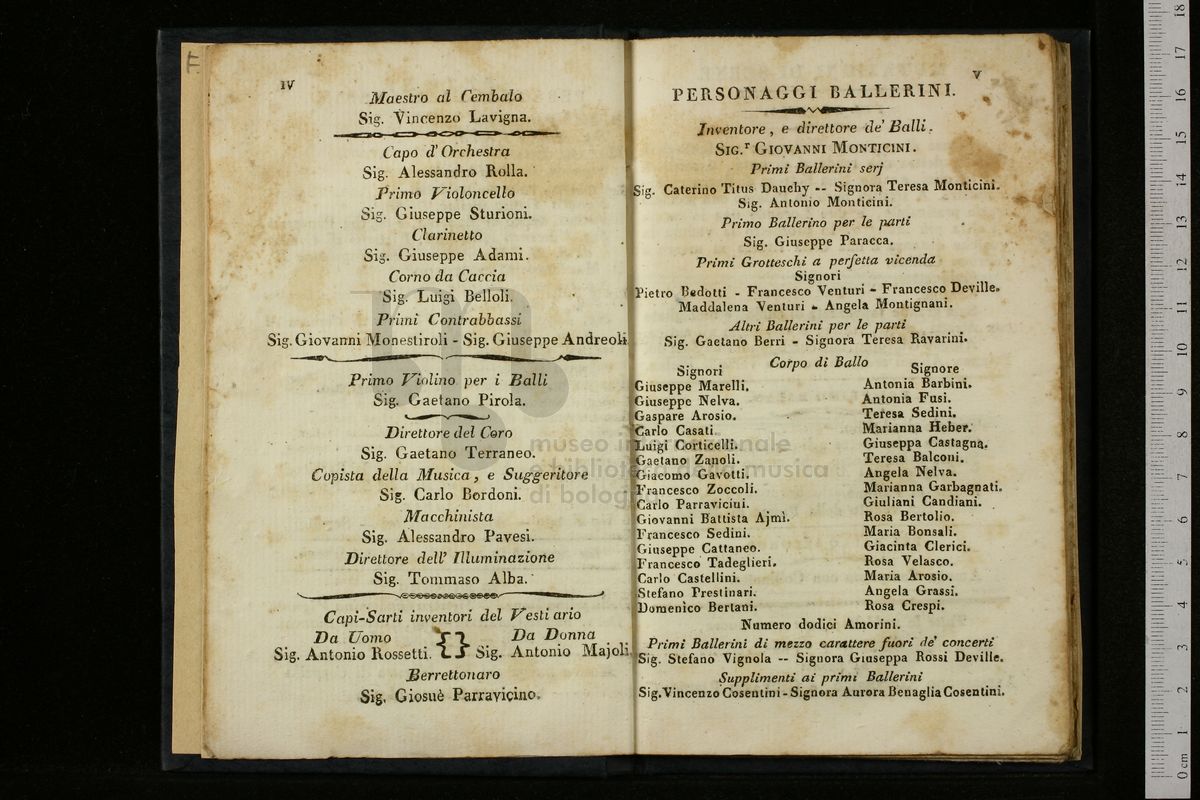 IV
Maestro al Cembalo
Sig. Vincenzo Lavigna.
Capo d'Orchestra
Sig. Alessandro Rolla.
Primo Violoncello
Sig. Giuseppe Sturioni.
Clarinetto
Sig. Giuseppe Adami.
Corno da Caccia
Sig. Luigi Belloli.
Primi Contrabbassi
Sig. Giovanni Monestiroli - Sig. Giuseppe Andreoli
Primo Violino per i Balli
Sig. Gaetano Pirola.
Direttore del Coro
Sig. Gaetano Terraneo.
Copista della Musica, e Suggeritore
Sig. Carlo Bordoni.
Macchinista
Sig. Alessandro Pavesi.
Direttore dell' Illuminazione
Sig. Tommaso Alba.
Capi-Sarti inventori del Vestiario
Da Uomo Da Donna
Sig. Antonio Rossetti. Sig. Antonio Majoli.
Berrettonaro
Sig. Giosuè Parravicino.
V
PERSONAGGI BALLERINI.
Inventore, e direttore de' Balli.
SIG.r GIOVANNI MONTICINI.
Primi Ballerini serj
Sig. Caterino Titus Dauchy -- Signora Teresa Monticini.
Sig. Antonio Monticini.
Primo Ballerino per le parti
Sig. Giuseppe Paracca.
Primi Grotteschi a perfetta vicenda
Signori
Pietro Bedotti - Francesco Venturi - Francesco Deville.
Maddalena Venturi - Angela Montignani.
Altri Ballerini per le parti
Sig. Gaetano Berri - Signora Teresa Ravarini.
Corpo di Ballo
Signori Signore
Giuseppe Marelli. Antonia Barbini.
Giuseppe Nelva. Antonia Fusi.
Gaspare Arosio. Teresa Sedini.
Carlo Casati. Marianna Heber.
Luigi Corticelli. Giuseppa Castagna.
Gaetano Zanoli. Teresa Balconi.
Giacomo Gavotti. Angela Nelva.
Francesco Zoccoli. Marianna Garbagnati.
Carlo Parravicini. Giuliani Candiani.
Giovanni Battista Ajmi. Rosa Bertolio.
Francesco Sedini. Maria Bonsali.
Giuseppe Cattaneo. Giacinta Clerici.
Francesco Tadeglieri. Rosa Velasco.
Carlo Castellini. Maria Arosio.
Stefano Prestinari. Angela Grassi.
Domenico Bertani. Rosa Crespi.
Numero dodici Amorini.
Primi Ballerini di mezzo carattere fuori de' concerti
Sig. Stefano Vignola -- Signora Giuseppa Rossi Deville.
Supplimenti ai primi Ballerini
Sig. Vincenzo Cosentini - Signora Aurora Benaglia Cosentini.
museo internazionale
e biblioteca della musica
di bologna
0 cm 1 2 3 4 5 6 7 8 9 10 11 12 13 14 15 16 17 18